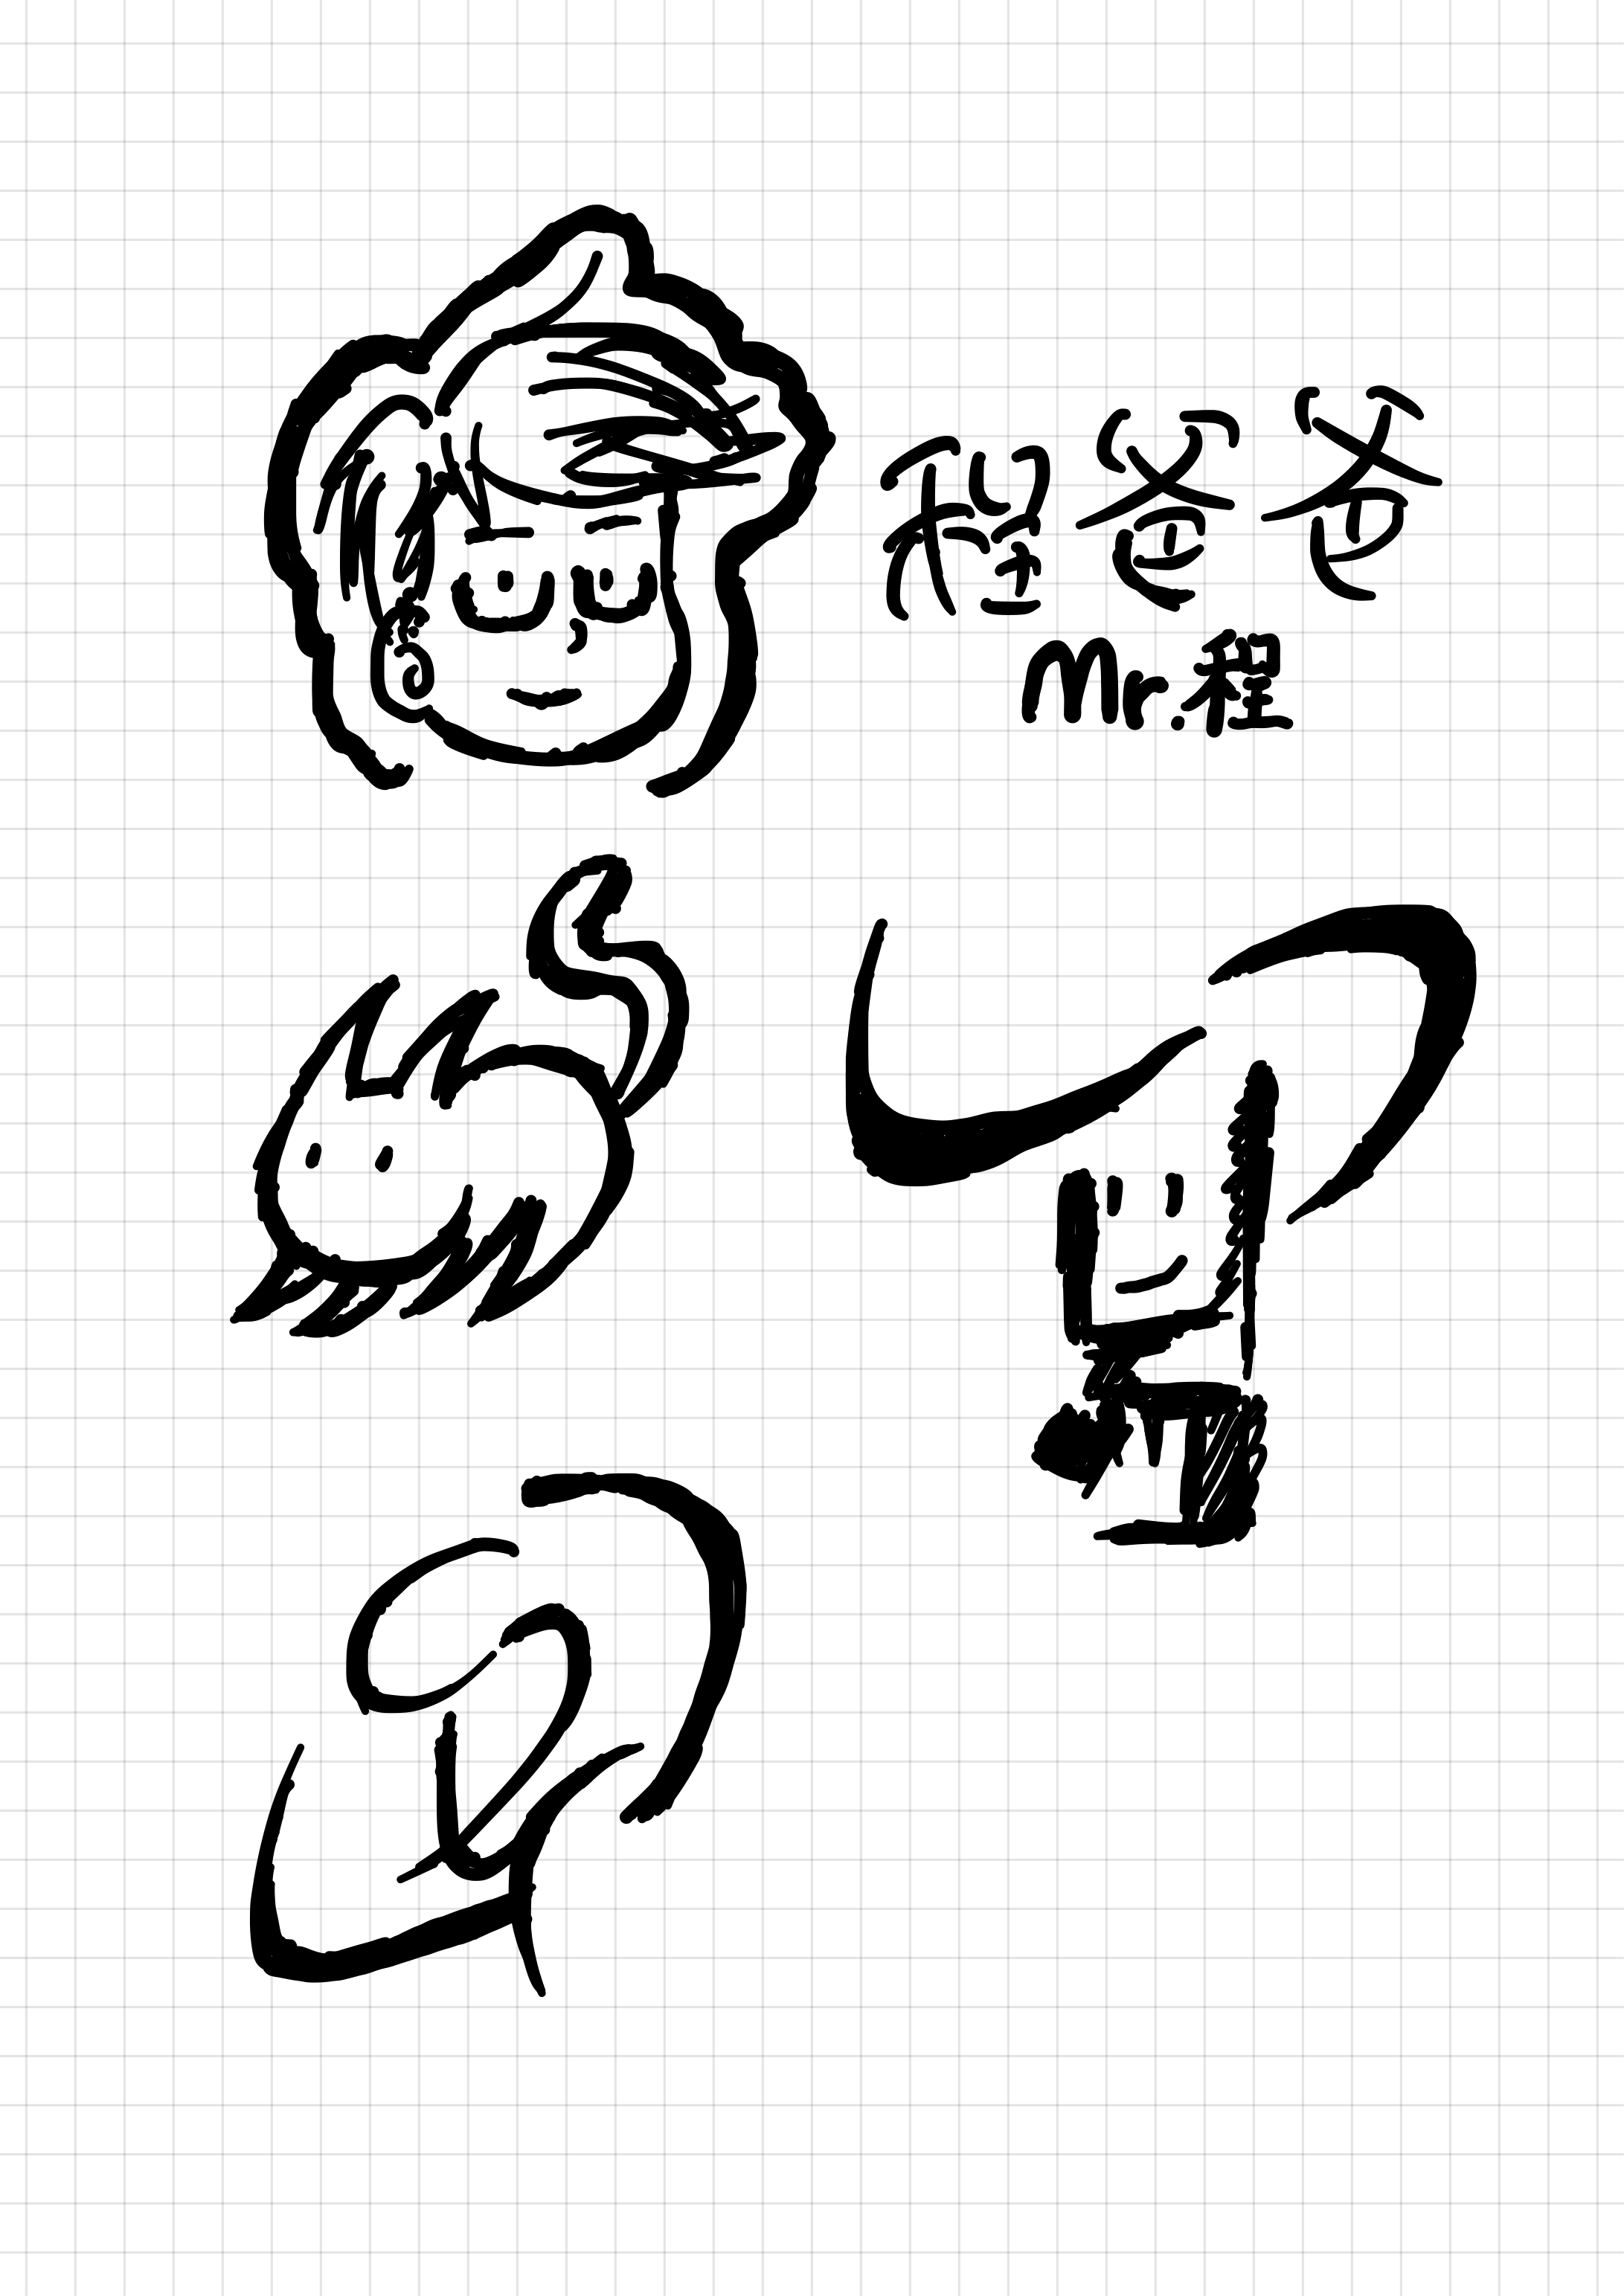 程爸爸
Mr.程